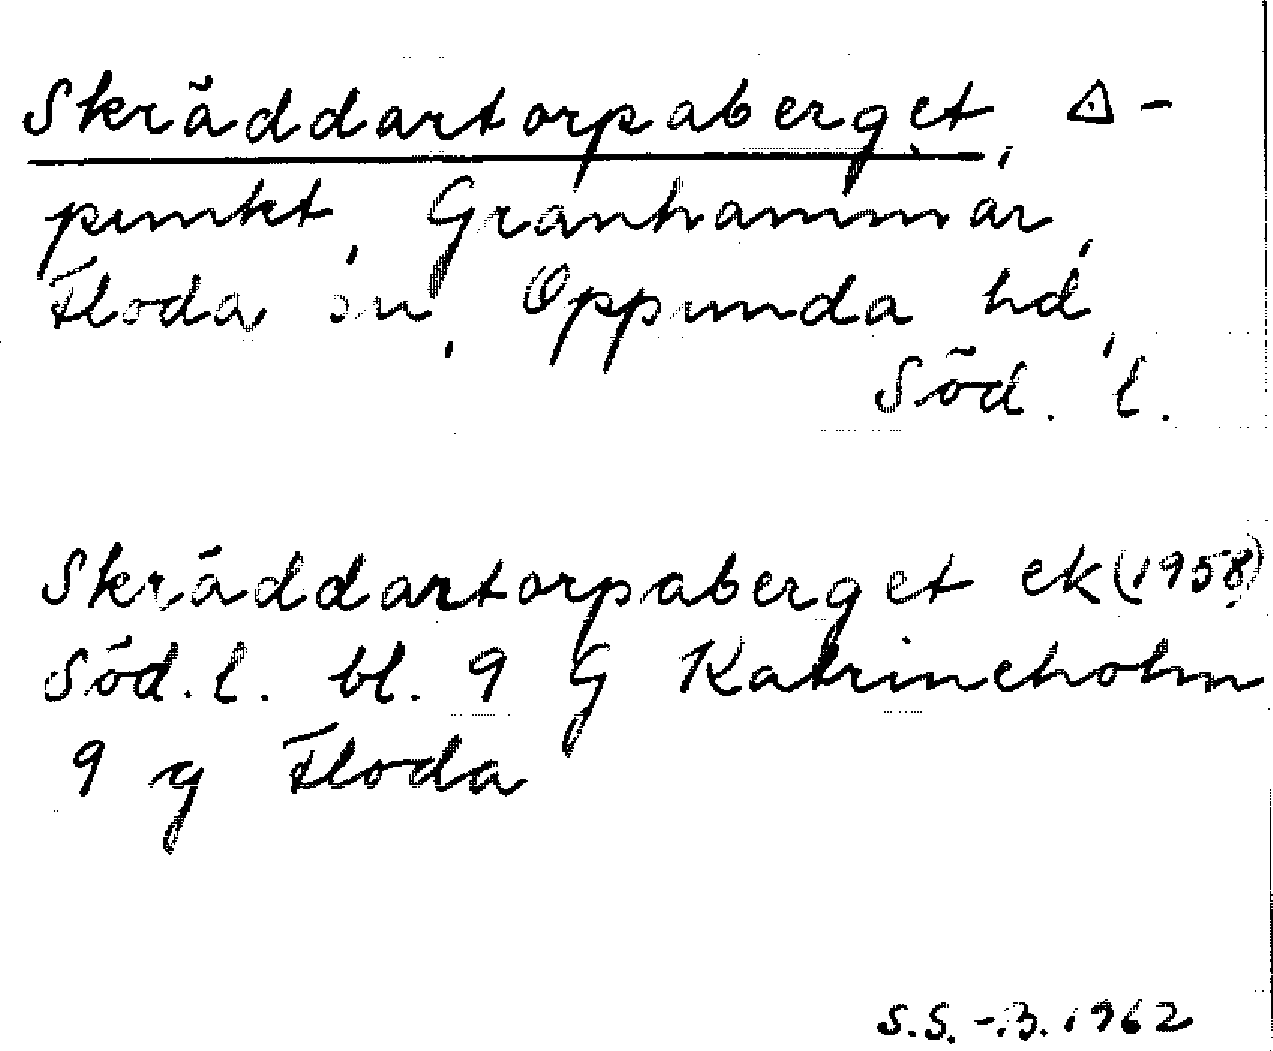 Skräddartorpaberget, △-
punkt, Granhammar,
Floda sn, Oppunda hd,
Söd. l.
Skräddartorpaberget ek (1958)
Söd. l. bl. 9 G Katrineholm
9 g Floda
S.S. -.3.1962